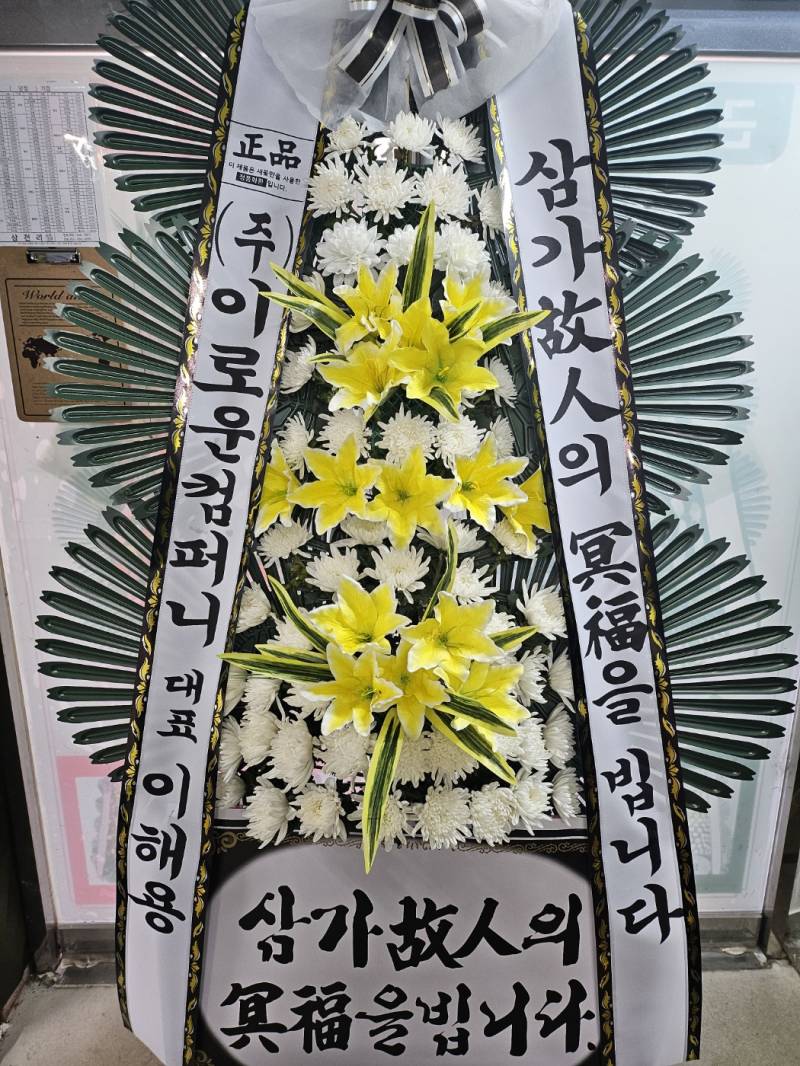 正品
이 제품은 새꽃만을 사용한
정품화환 입니다.
(주)이로운컴퍼니 대표 이해용
삼가故人의 冥福을 빕니다
삼가故人의
冥福을빕니다.
삼천리